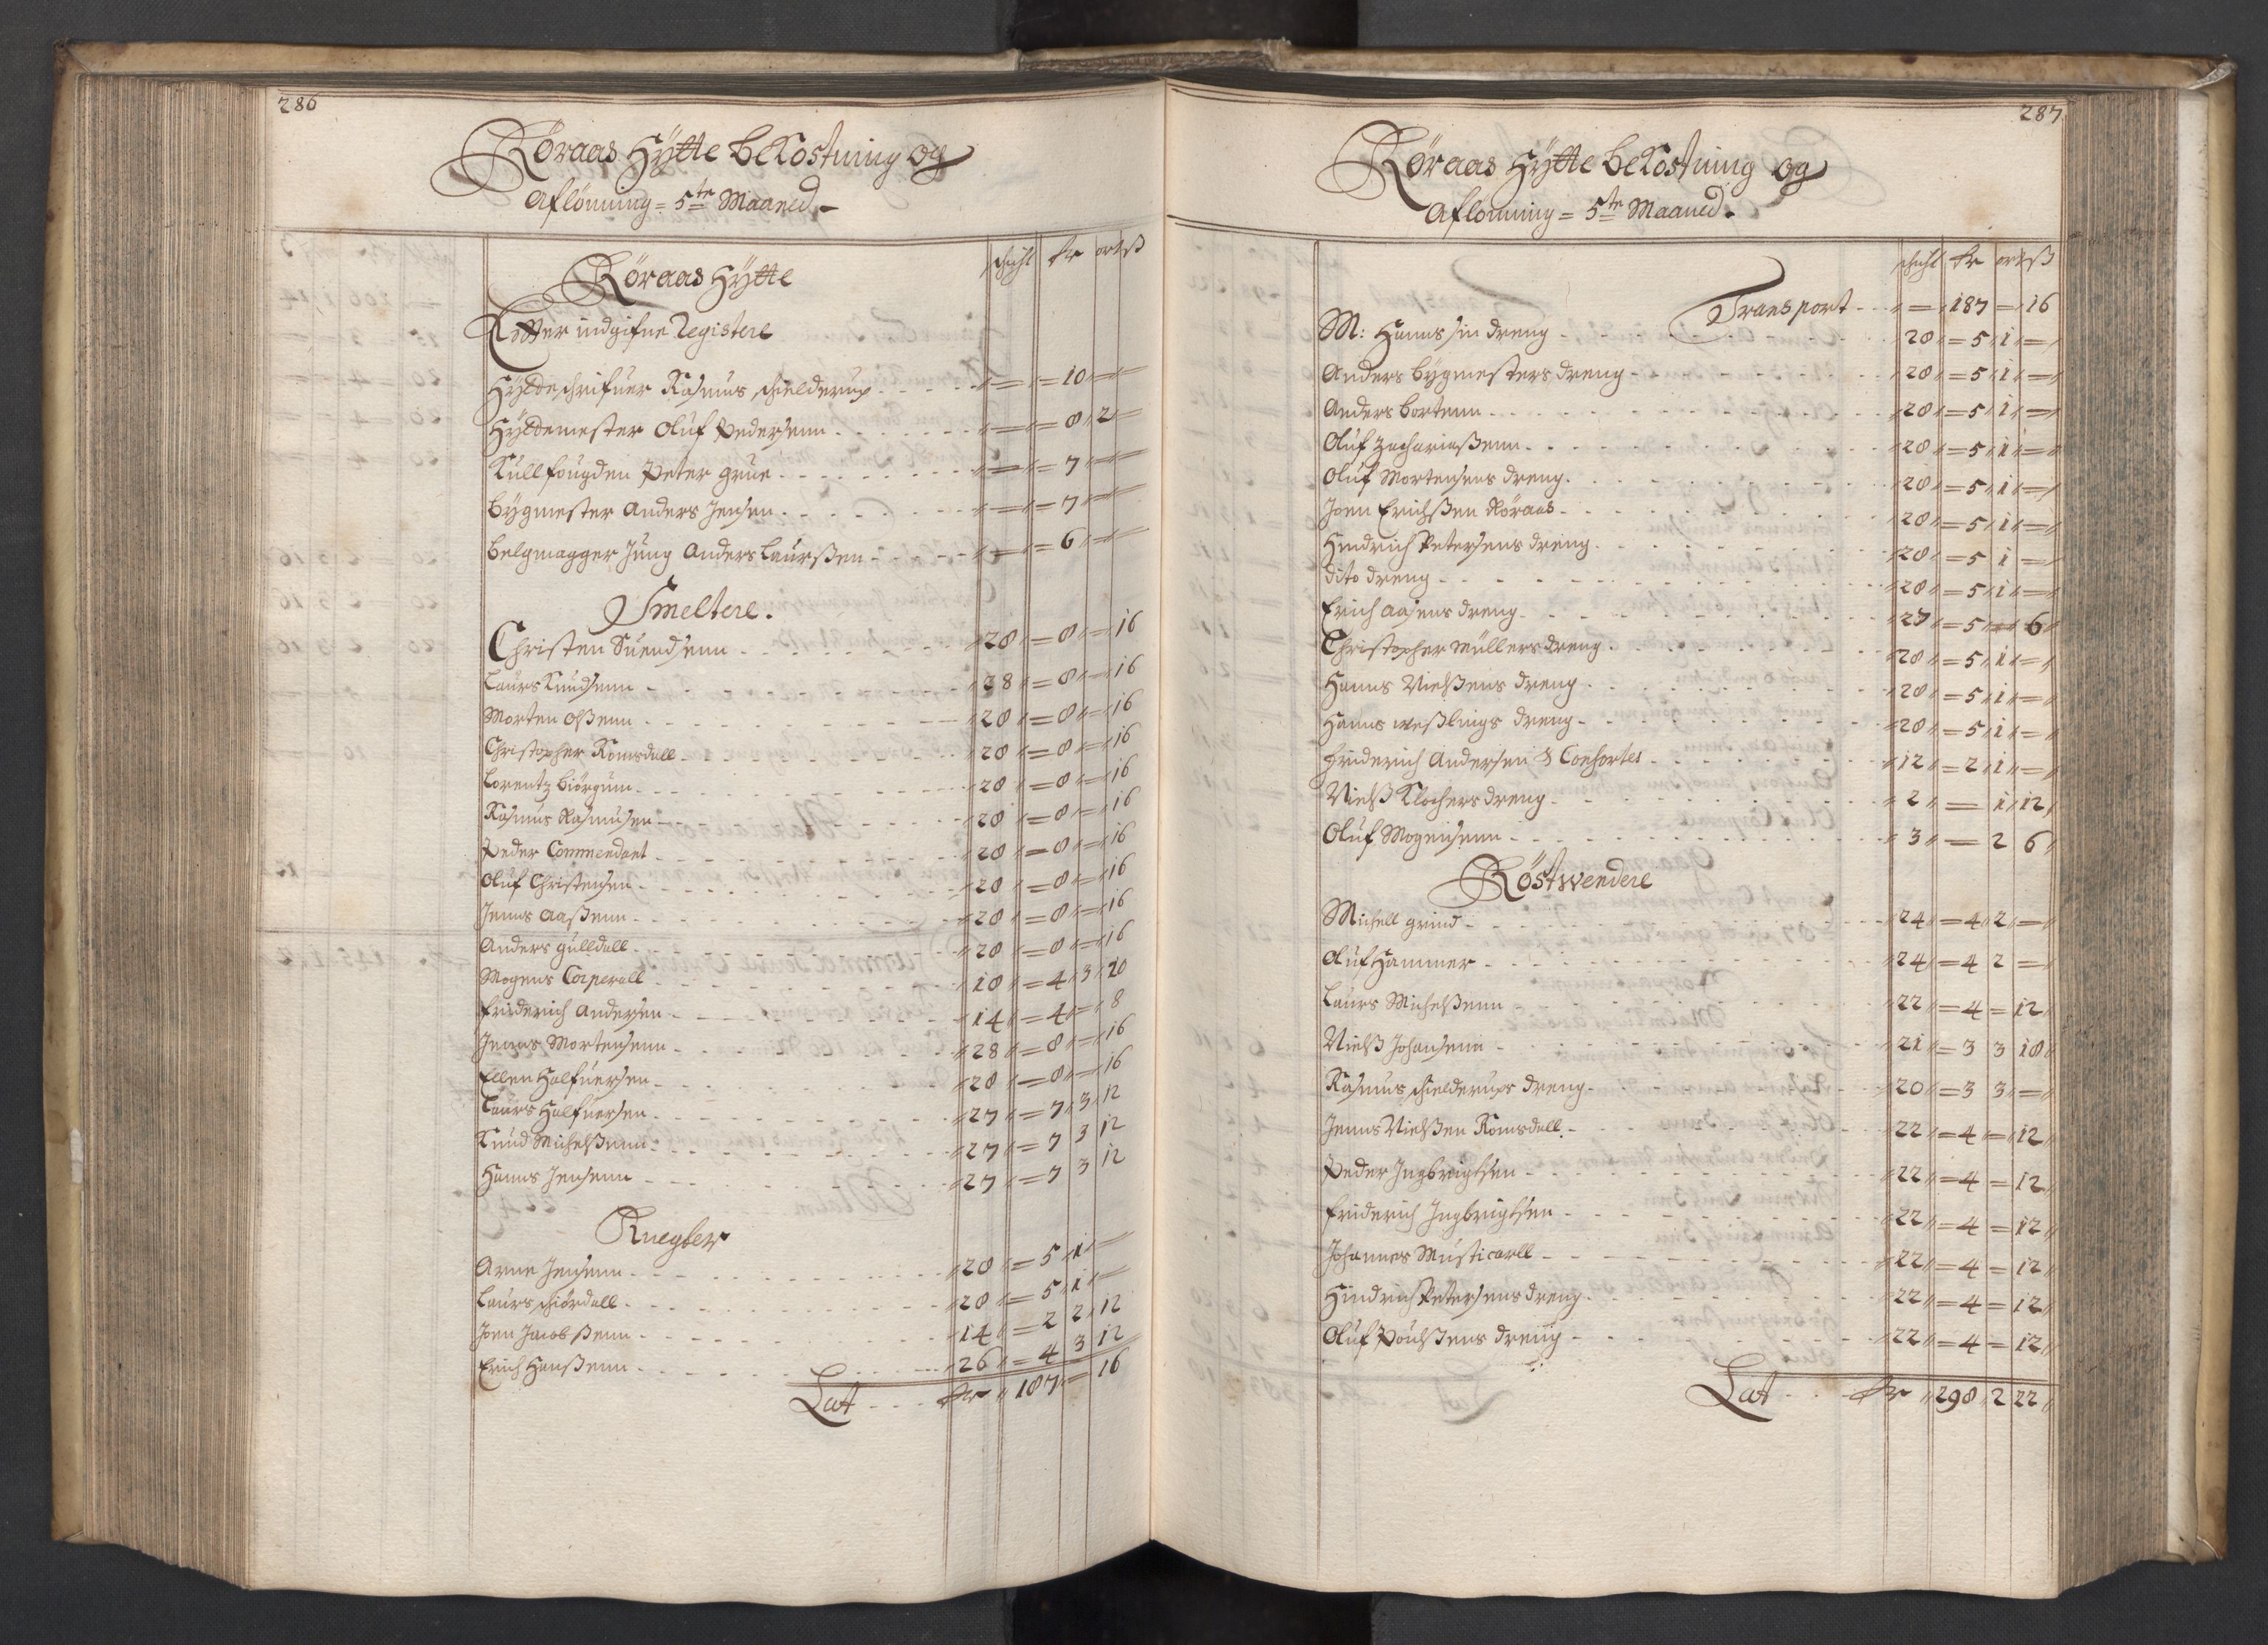 286
Röraas Hÿtte beKostning og
Aflønning = 5te Maaned.
schicht Rr ort ß
Röraas Hÿtte
Effter indgifne Registere
Hÿtteschrifuer Rasmus Schielderup - - - = 10 = =
Hÿttemester Oluf Pedersenn - - - = 8 2 =
Kullfougden Peter Grue - - - = 7 = =
Bÿgmester Anders Jensen - - - = 7 = =
Belgmagger Jung Anders Laurßen - - - = 6 = =
Smeltere.
Christen Suendsenn - - - 28 = 8 = 16
Laurs Knudsenn - - - 28 = 8 = 16
Morten Oßenn - - - 28 = 8 = 16
Christopher Romsdall - - - 28 = 8 = 16
Lorentz Biörgum - - - 28 = 8 = 16
Rasmus Rasmusen - - - 28 = 8 = 16
Peder Commendant - - - 28 = 8 = 16
Oluf Christensen - - - 28 = 8 = 16
Jenns Aaßenn - - - 28 = 8 = 16
Anders Gulldall - - - 28 = 8 = 16
Mogens Corperall - - - 18 = 4 3 20
Friderich Andersen - - - 14 = 4 = 8
Jenns Mortensenn - - - 28 = 8 = 16
Ellen Halfuersen - - - 28 = 8 = 16
Laurs Halfuersen - - - 27 = 7 3 12
Knud Michelßenn - - - 27 = 7 3 12
Hanns Jensenn - - - 27 = 7 3 12
Knegter
Arne Jensenn - - - 28 = 5 1 =
Laurs Schiördall - - - 28 = 5 1 =
Joen Jacobßenn - - - 14 = 2 2 12
Erich Hanßenn - - - 26 = 4 3 12
Lat - - - Rr 187 = 16
287
Röraas Hÿtte beKostning og
Aflønning = 5te Maaned.
schicht Rr ort ß
Transport - - - = 187 = 16
M: Hanns sin dreng - - - 28 = 5 1 =
Anders Bÿgmesters dreng - - - 28 = 5 1 =
Anders Bortenn - - - 28 = 5 1 =
Oluf Zachariaßenn - - - 28 = 5 1 =
Oluf Mortensens dreng - - - 28 = 5 1 =
Joen Erichßen Röraas - - - 28 = 5 1 =
Hindrich Petersens dreng - - - 28 = 5 1 =
dito dreng - - - 28 = 5 1 =
Erich Aasens dreng - - - 27 = 5 = 6
Christopher Müllers dreng - - - 28 = 5 1 =
Hanns Nielßens dreng - - - 28 = 5 1 =
Hanns Weßlings dreng - - - 28 = 5 1 =
Friderich Andersen & Consortes - - - 12 = 2 1 =
Nielß Klochers dreng - - - 2 = 1 12
Oluf Mogensenn - - - 3 = 2 6
Röstwendere
Michell Grind - - - 24 = 4 2 =
Oluf Hammer - - - 24 = 4 2 =
Laurs Michelßenn - - - 22 = 4 = 12
Nielß Johansenn - - - 21 = 3 3 18
Rasmus Schielderups dreng - - - 20 = 3 3 =
Jenns Nielßen Romsdall - - - 22 = 4 = 12
Peder Ingbrigtsen - - - 22 = 4 = 12
Friderich Ingbrigtsen - - - 22 = 4 = 12
Johannes Musticarll - - - 22 = 4 = 12
Hindrich Petersens dreng - - - 22 = 4 = 12
Oluf Poulßens dreng - - - 22 = 4 = 12
Lat - - Rr 298 2 22